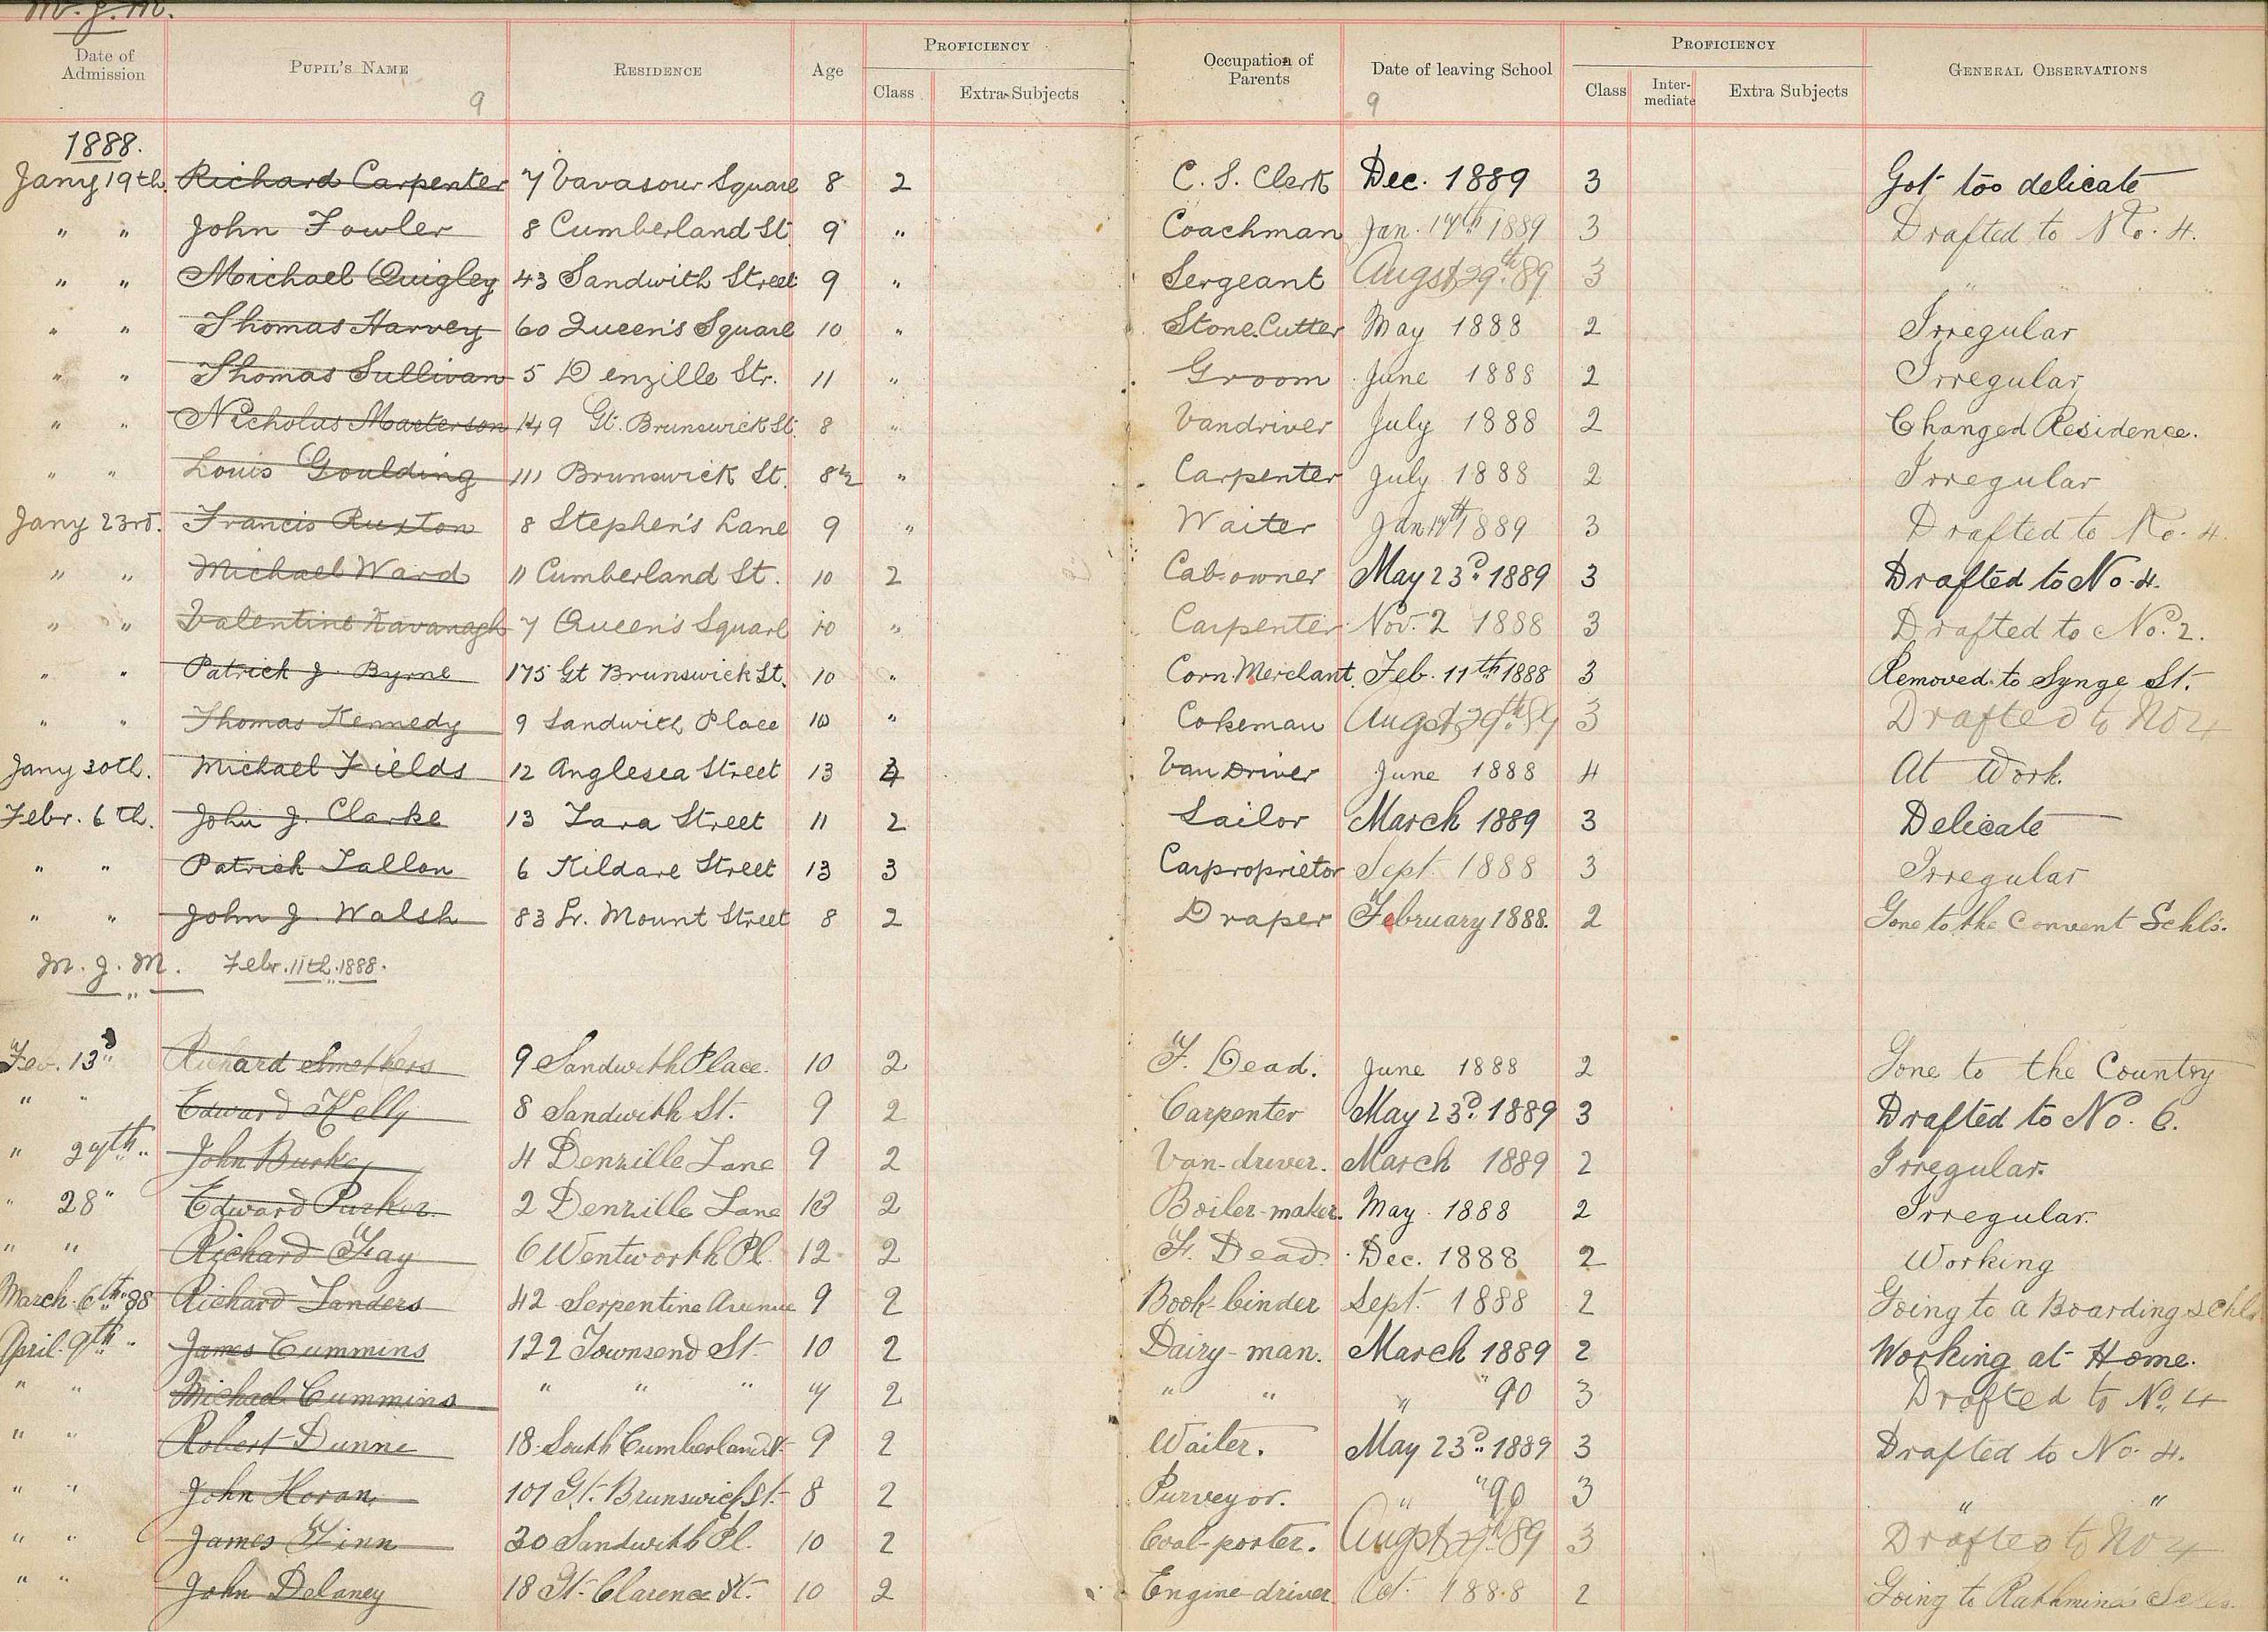 M. J. M.
Date of Admission Pupil's Name Residence Age Proficiency Class Extra Subjects Occupation of Parents Date of leaving School Proficiency Class Inter-mediate Extra Subjects General Observations
9 9
1888.
Jany 19th. Richard Carpenter 7 Vavasour Square 8 2 C. S. Clerk Dec. 1889 3 Got too delicate
" " John Fowler 8 Cumberland St. 9 " Coachman Jan. 17th 1889 3 Drafted to No. 4.
" " Michael Quigley 43 Sandwith Street 9 " Sergeant Augst 29th 89 3 " "
" " Thomas Harvey 60 Queen's Square 10 " Stone Cutter May 1888 2 Irregular
" " Thomas Sullivan 5 Denzille Str. 11 " Groom June 1888 2 Irregular
" " Nicholas Masterson 149 Gt. Brunswick St. 8 " Vandriver July 1888 2 Changed Residence.
" " Louis Goulding 111 Brunswick St. 8½ " Carpenter July 1888 2 Irregular
Jany 23rd. Francis Ruxton 8 Stephen's Lane 9 " Waiter Jan 17th 1889 3 Drafted to No. 4.
" " Michael Ward 11 Cumberland St. 10 2 Cab-owner May 23d. 1889 3 Drafted to No. 4.
" " Valentine Kavanagh 7 Queen's Square 10 " Carpenter Nov. 2 1888 3 Drafted to No. 2.
" " Patrick J. Byrne 175 Gt Brunswick St. 10 " Corn Merchant. Feb. 11th 1888 3 Removed to Synge St.
" " Thomas Kennedy 9 Sandwith Place 10 " Cokeman Augst 29th 89 3 Drafted to No 4
Jany 30th. Michael Fields 12 Anglesea Street 13 Van Driver June 1888 4 At Work.
Febr. 6th. John J. Clarke 13 Tara Street 11 2 Sailor March 1889 3 Delicate
" " Patrick Tallon 6 Kildare Street 13 3 Carproprietor Sept. 1888 3 Irregular
" " John J. Walsh 83 Lr. Mount Street 8 2 Draper February 1888. 2 Gone to the Convent Schls.
M. J. M. Febr. 11th. 1888.
Feb. 13d " Richard Smethers 9 Sandwith Place. 10 2 F. Dead. June 1888 2 Gone to the Country
" " Edward Kelly 8 Sandwith St. 9 2 Carpenter May 23d. 1889 3 Drafted to No. 6.
" 27th " John Burke 4 Denzille Lane 9 2 Van-driver. March 1889 2 Irregular.
" 28 " Edward Parker 2 Denzille Lane 13 2 Boiler-maker. May 1888 2 Irregular.
" " Richard Fay 6 Wentworth Pl. 12 2 F. Dead. Dec. 1888 2 Working
March 6th 88 Richard Landers 42 Serpentine Avenue 9 2 Book-binder Sept. 1888 2 Going to a Boarding schl.
April 9th " James Cummins 122 Townsend St 10 2 Dairy-man. March 1889 2 Working at Home.
" " Michael Cummins " " " 7 2 " " " " 90 3 Drafted to No. 4
" " Robert Dunne 18 South Cumberland St 9 2 Waiter. May 23d. 1889 3 Drafted to No. 4.
" " John Horan 101 Gt. Brunswick St. 8 2 Purveyor. " " 90 3 " "
" " James Finn 30 Sandwith Pl. 10 2 Coal-porter. Augst 89 3 Drafted to No 4
" " John Delaney 18 Gt. Clarence St. 10 2 Engine-driver. Oct. 1888 2 Going to Rathmines